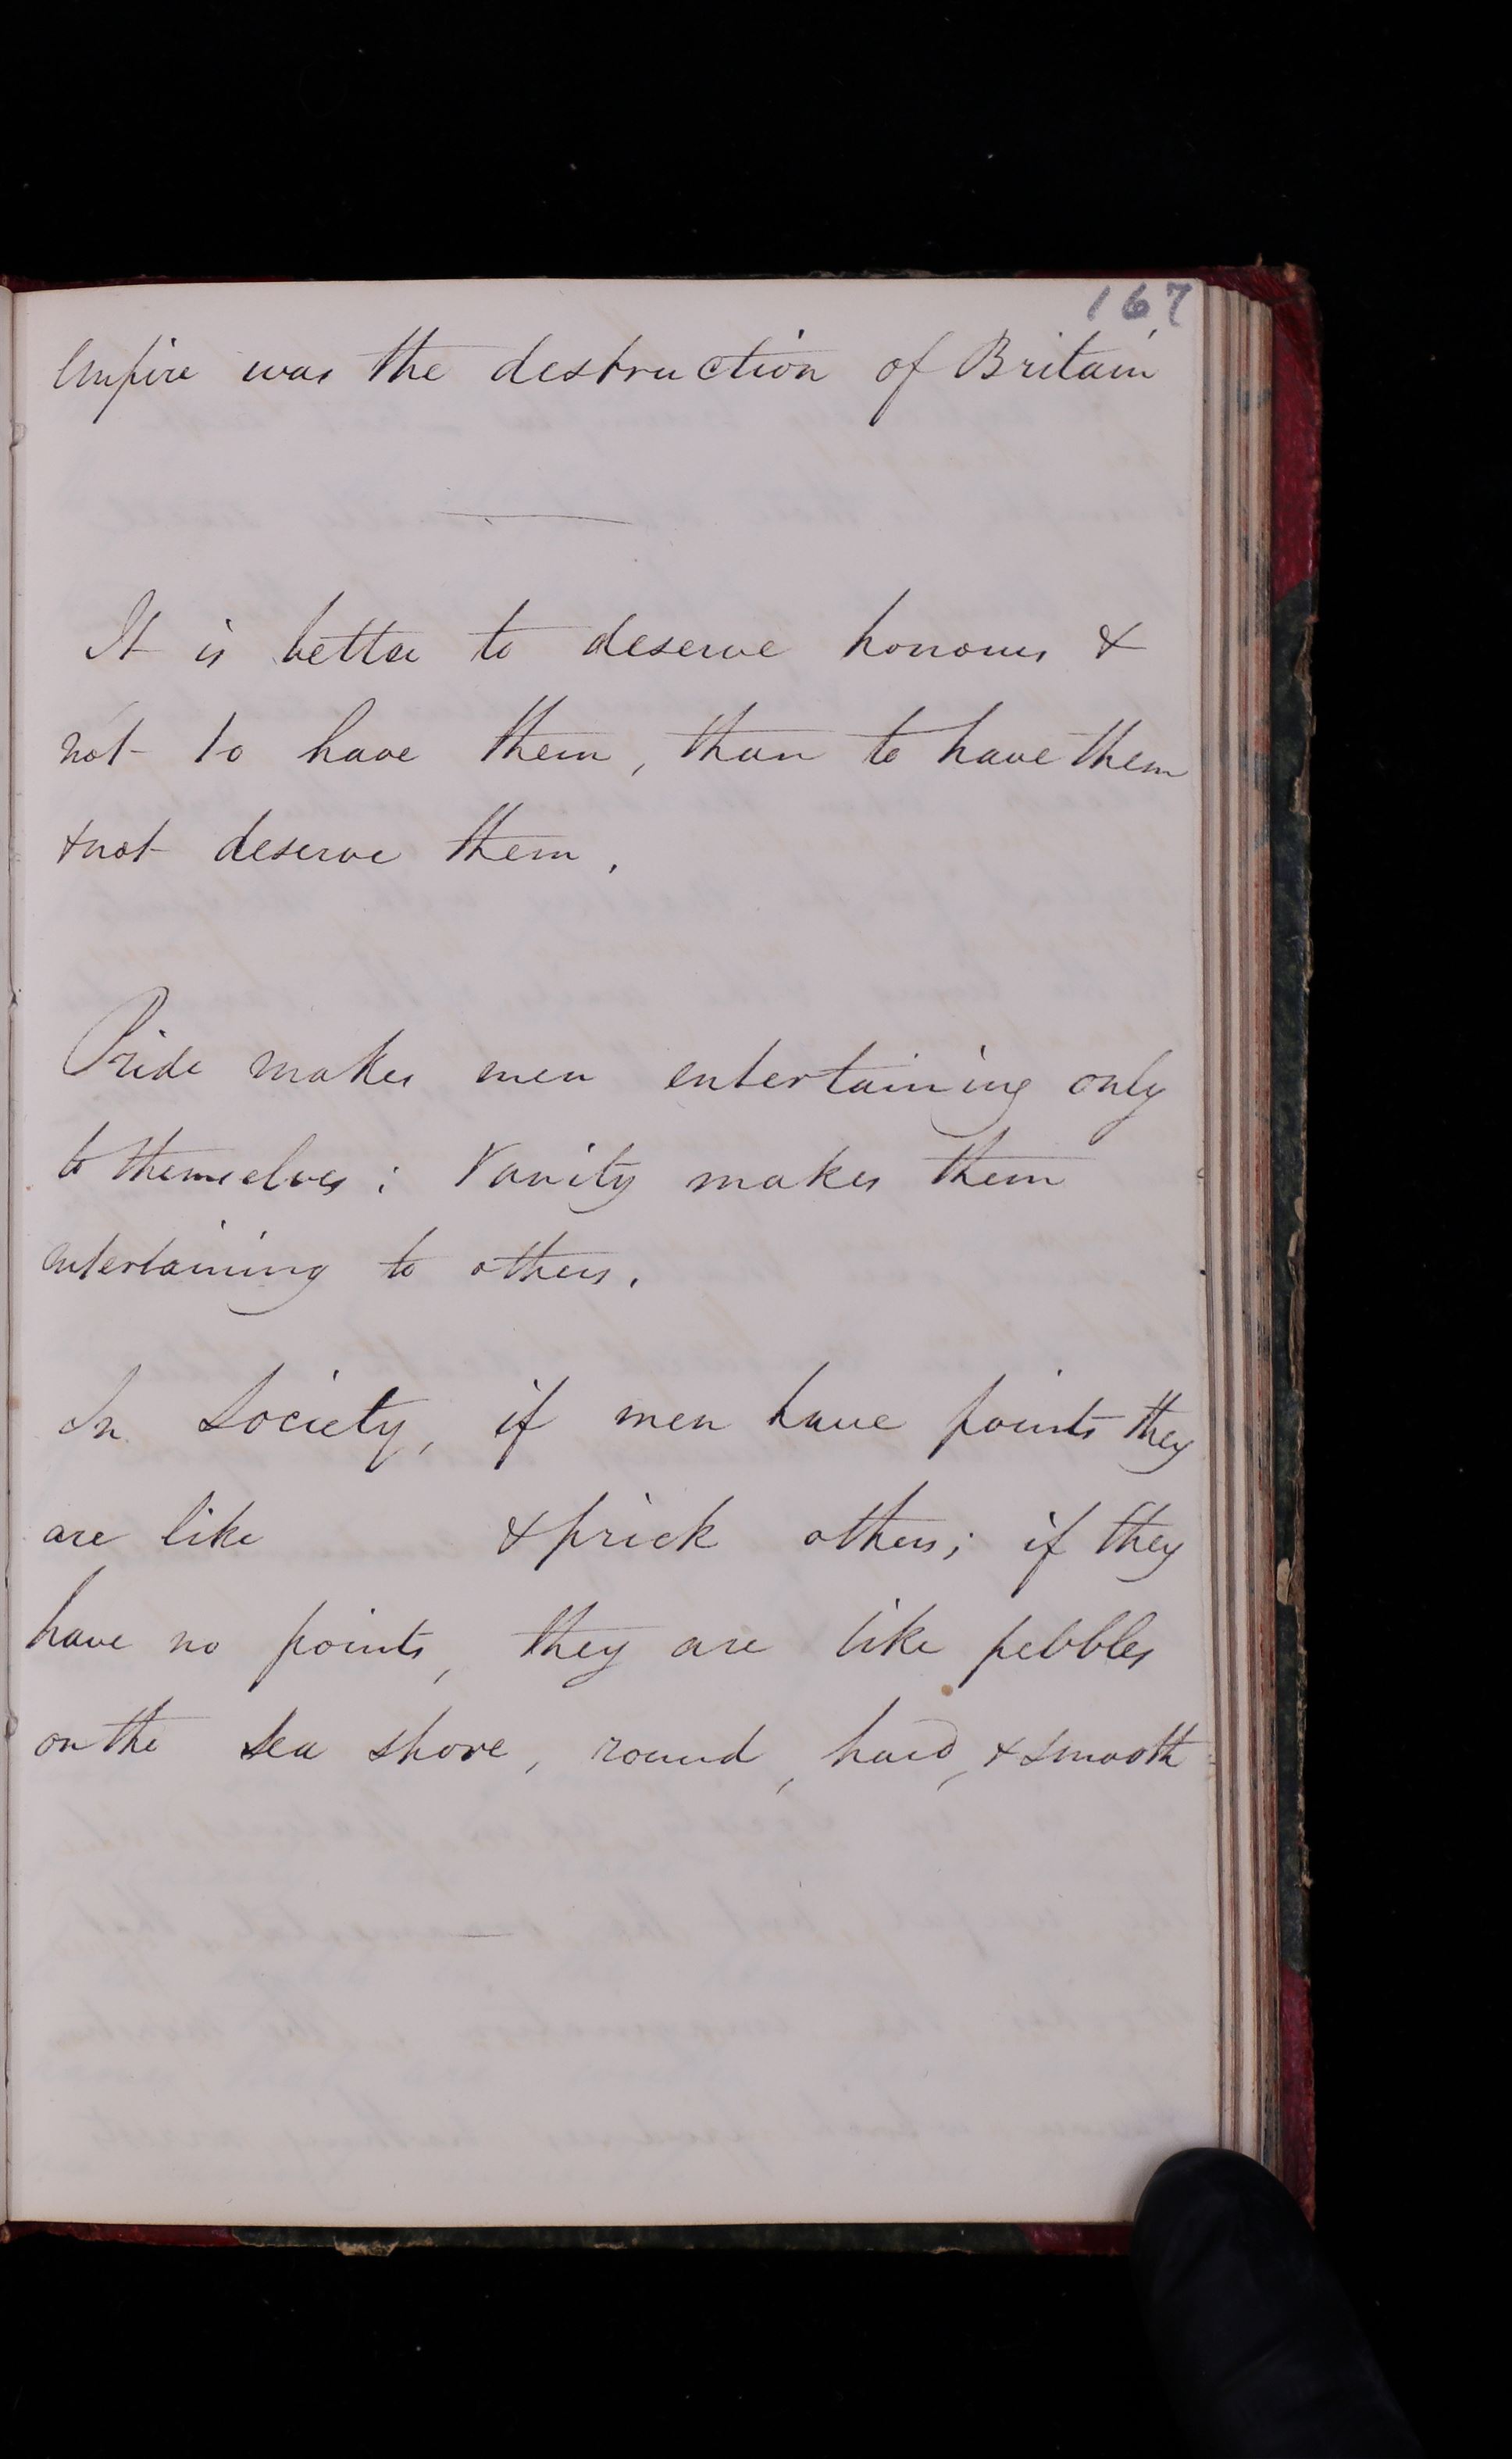 167
Empire was the destruction of Britain
It is better to deserve honours &
not to have them, than to have them
& not deserve them.
Pride makes men entertaining only
to themselves; Vanity makes them
entertaining to others.
In Society, if men have points they
are like & prick others; if they
have no points, they are like pebbles
on the sea shore, round, hard, & smooth